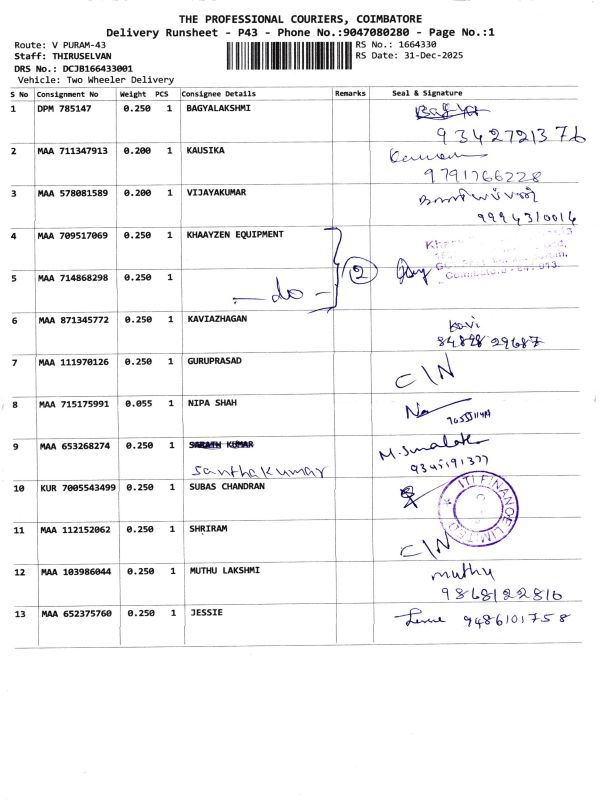 THE PROFESSIONAL COURIERS, COIMBATORE
Delivery Runsheet - P43 - Phone No.:9047080280 - Page No.:1
Route: V PURAM-43
RS No.: 1664330
Staff: THIRUSELVAN
RS Date: 31-Dec-2025
DRS No.: DCJB166433001
Vehicle: Two Wheeler Delivery
S No Consignment No Weight PCS Consignee Details Remarks Seal & Signature
1 DPM 785147 0.250 1 BAGYALAKSHMI
9342721376
2 MAA 711347913 0.200 1 KAUSIKA
9791766228
3 MAA 578081589 0.200 1 VIJAYAKUMAR
9994310014
4 MAA 709517069 0.250 1 KHAAYZEN EQUIPMENT
2
5 MAA 714868298 0.250 1
Coimbatore
— do —
6 MAA 871345772 0.250 1 KAVIAZHAGAN Kavi
7 MAA 111970126 0.250 1 GURUPRASAD
C/N
8 MAA 715175991 0.055 1 NIPA SHAH
9 MAA 653268274 0.250 1 SARATH KUMAR
Santhakumar 9345191377
10 KUR 7005543499 0.250 1 SUBAS CHANDRAN
ITI FINANCE LIMITED
11 MAA 112152062 0.250 1 SHRIRAM
C/N
12 MAA 103986044 0.250 1 MUTHU LAKSHMI muthu
9868122816
13 MAA 652375760 0.250 1 JESSIE 9486101758